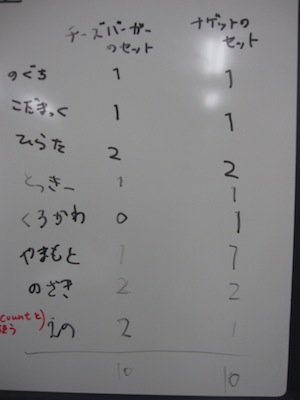 チーズバーガー ナゲットの
のセット セット
のぐち 1 1
こだまっく 1 1
ひらた 2 2
とっきー 1 1
くろかわ 0 1
やまもと 1 1
のざき 2 2
countと
えの 2 1
10 10